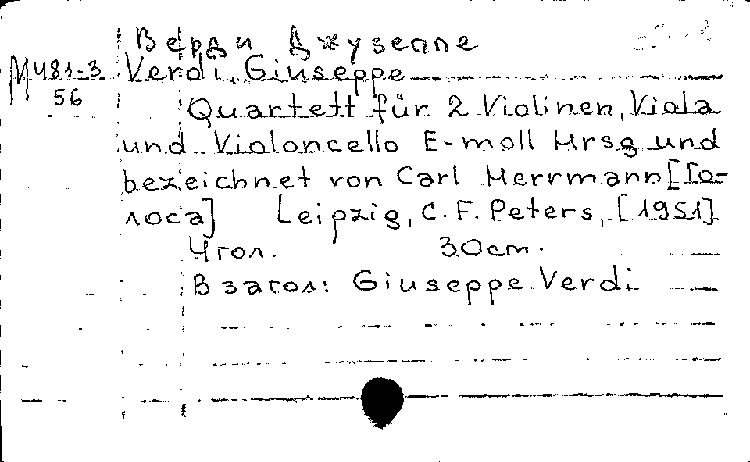 Верди Джузеппе
М 481-3 Verdi, Giuseppe
56
Quartett für 2 Violinen, Viola
und Violoncello E-moll Hrsg und
bezeichnet von Carl Herrmann [Го-
лоса] Leipzig, C. F. Peters, [1951]
4 гол. 30 cm.
В загол: Giuseppe Verdi